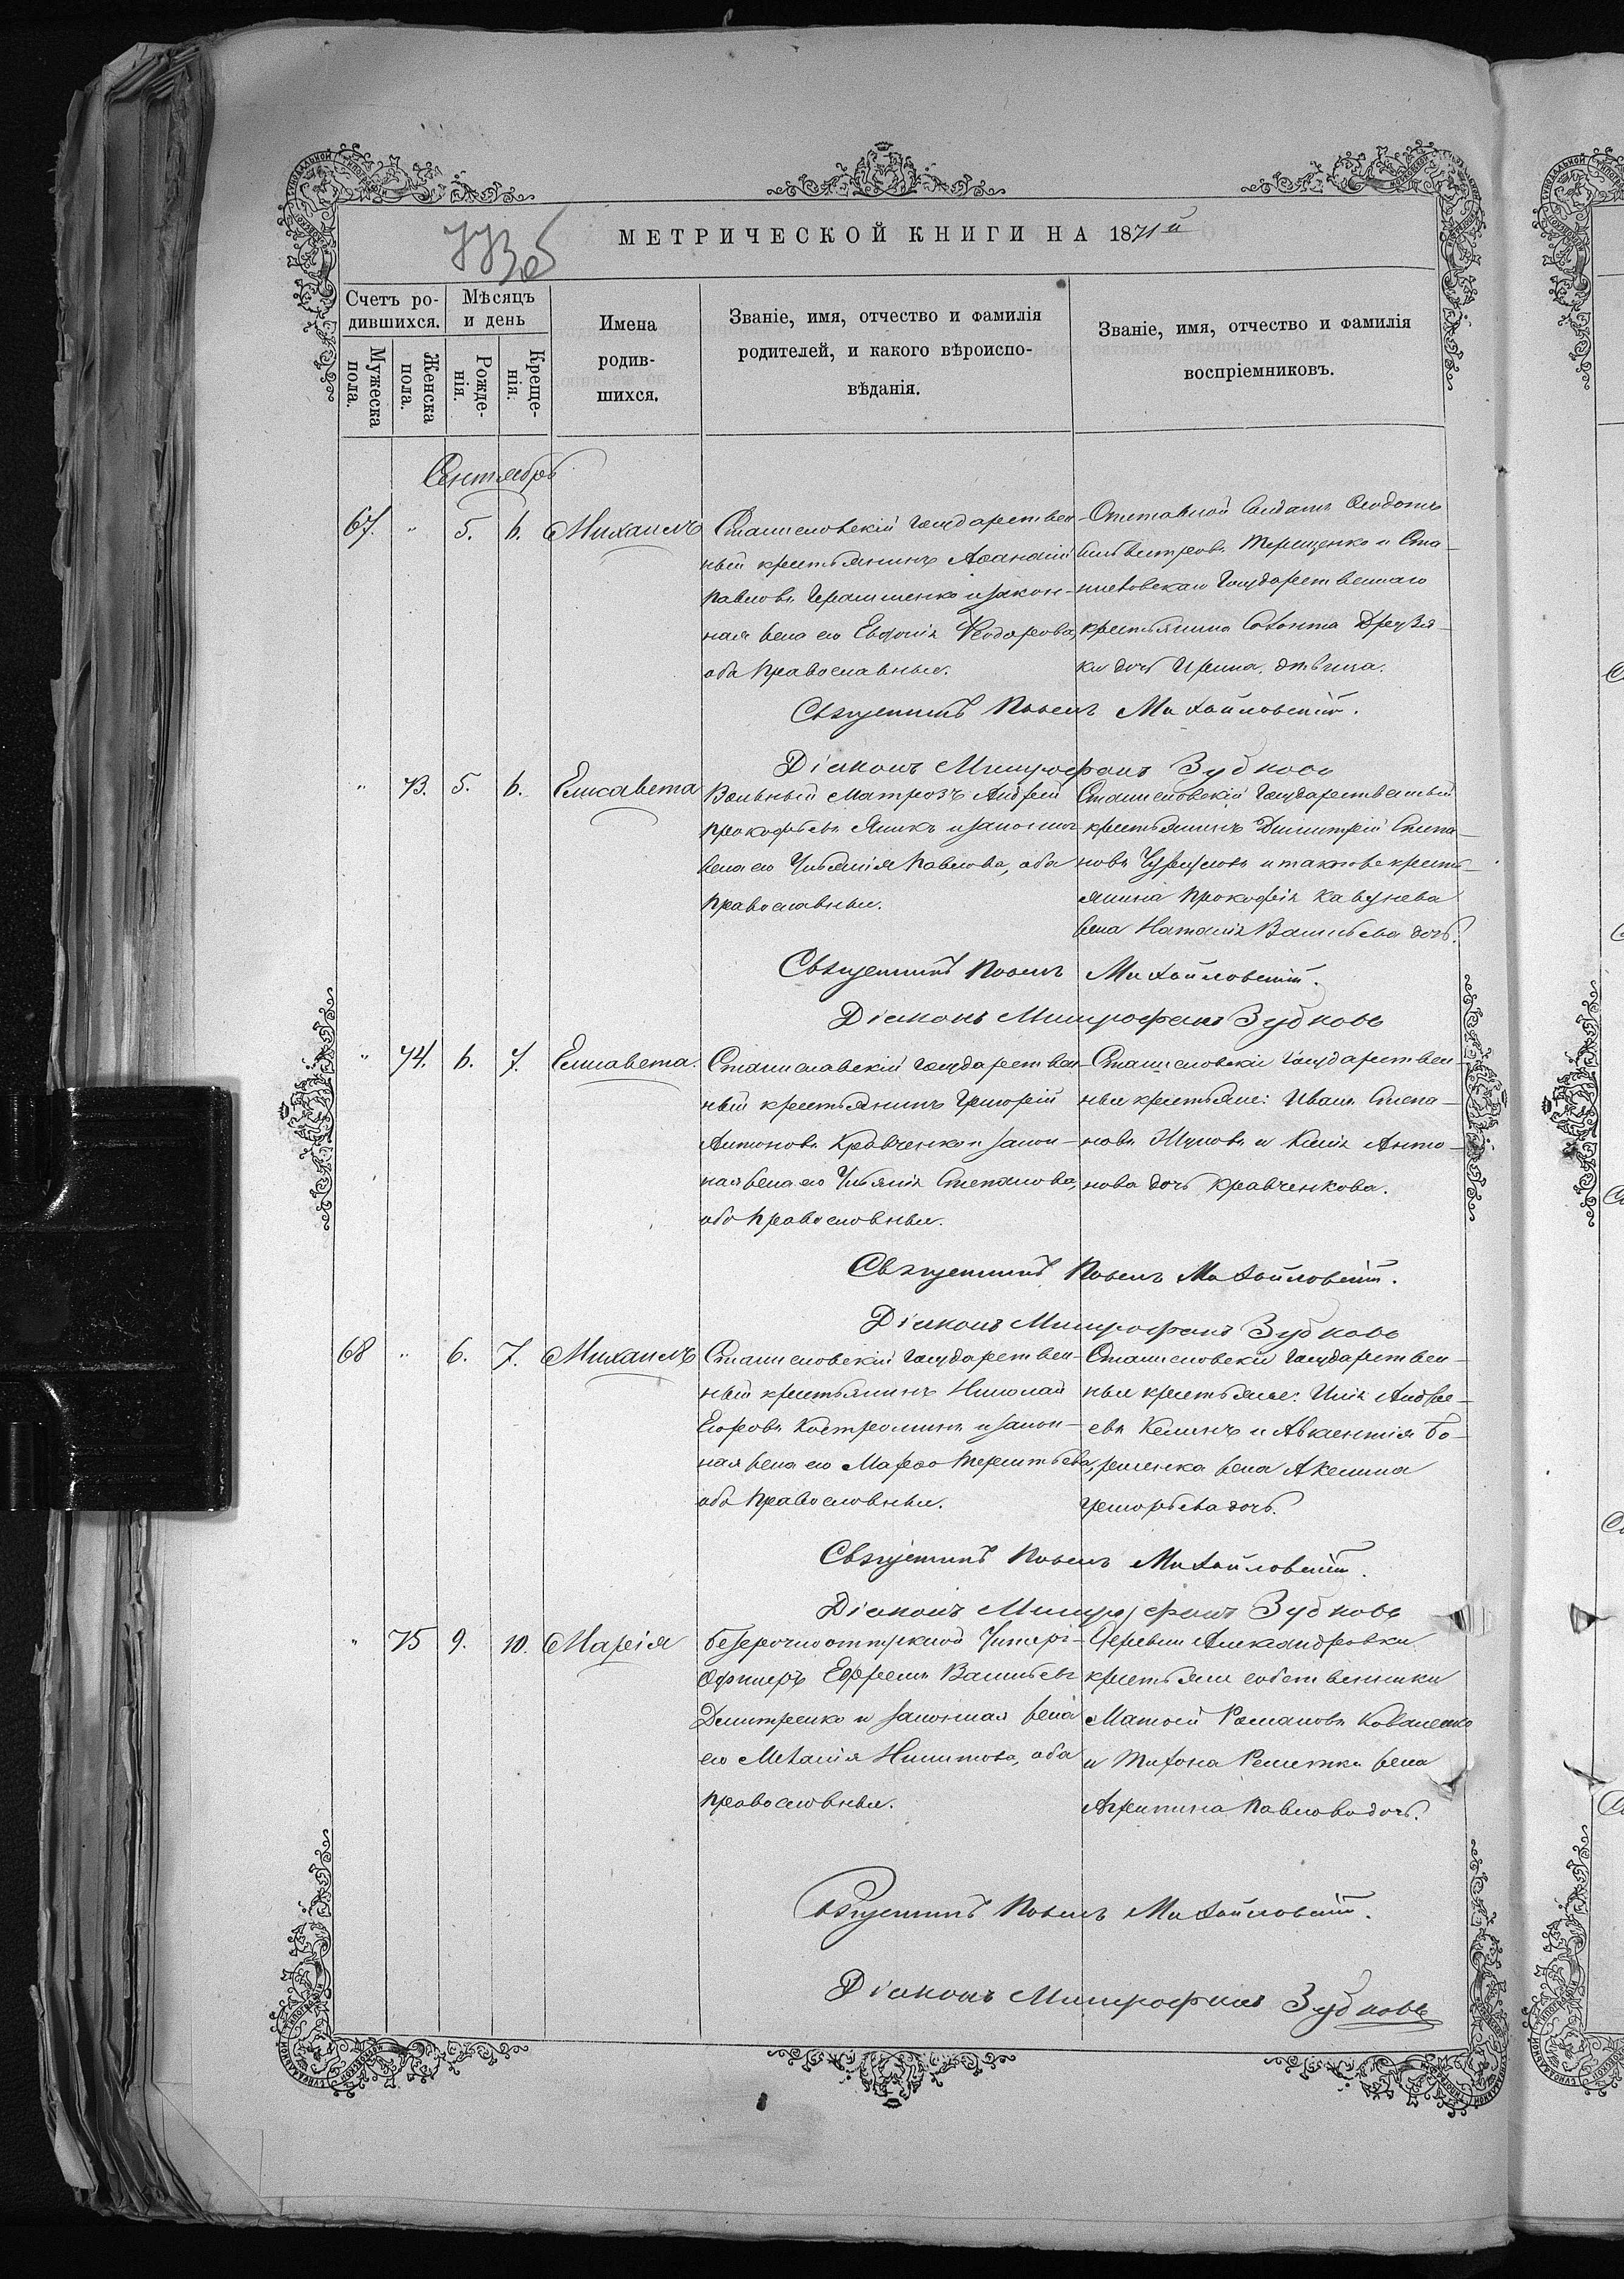 МЕТРИЧЕСКОЙ КНИГИ НА 1871й
Счетъ родившихся.
Мѣсяцъ и день
Мужеска пола.
Женска пола.
Рожденія.
Крещенія.
Имена родившихся.
Званіе, имя, отчество и фамилія
родителей, и какого вѣроиспо-
вѣданія.
Званіе, имя, отчество и фамилія
воспріемниковъ.
Сентябрь
67. " 5. 6. Михаилъ
Станиславскій государствен-
ный крестьянинъ Аѳанасій
Павловъ Герасименко и закон-
ная жена его Евдокія Ѳеодорова,
оба православные.
Отставной солдатъ Ѳеодотъ
Сильвестровъ Терещенко и Ста-
ниславскаго государственнаго
крестьянина
ки дочь Ирина, дѣвица.
Священникъ Павелъ Михайловскій.
Діаконъ Митрофанъ Зубковъ
" 73. 5. 6. Елисавета
Вольный матрозъ Андрей
Прокофьевъ Яликъ и законная
жена его Ульянія Павлова, оба
православные.
Станиславскій государственный
крестьянинъ Димитрій Степа-
новъ и таковаго крестья-
янина Прокофія Кавунова
жена Наталія Васильева дочь.
Священникъ Павелъ Михайловскій.
Діаконъ Митрофанъ Зубковъ
" 74. 6. 7. Елисавета.
Станиславскій государствен-
ный крестьянинъ Григорій
Антоновъ Кравченко и закон-
ная жена его Ульянія Степанова,
оба православные.
Станиславскіе государствен-
ные крестьяне: Иванъ Степа-
новъ и Ксенія Анто-
нова дочь Кравченкова.
Священникъ Павелъ Михайловскій.
Діаконъ Митрофанъ Зубковъ
68 " 6. 7. Михаилъ
Станиславскій государствен-
ный крестьянинъ Николай
Егоровъ Костроминъ и закон-
ная жена его Марѳа Терентьева,
оба православные.
Станиславскіе государствен-
ные крестьяне: Илія Андре-
евъ и Авксентія Бо-
жена Акелина
Григорьева дочь.
Священникъ Павелъ Михайловскій.
Діаконъ Митрофанъ Зубковъ
" 75 9. 10. Марія
Безсрочноотпускной Унтеръ-
Офицеръ Ефремъ Васильевъ
Дмитренко и законная жена
его Меланія Никитова, оба
православные.
Деревни Александровки
крестьяне собственники
Матѳей Романовъ Коваленко
и Тихона жена
Агрипина Павлова дочь.
Священникъ Павелъ Михайловскій.
Діаконъ Митрофанъ Зубковъ